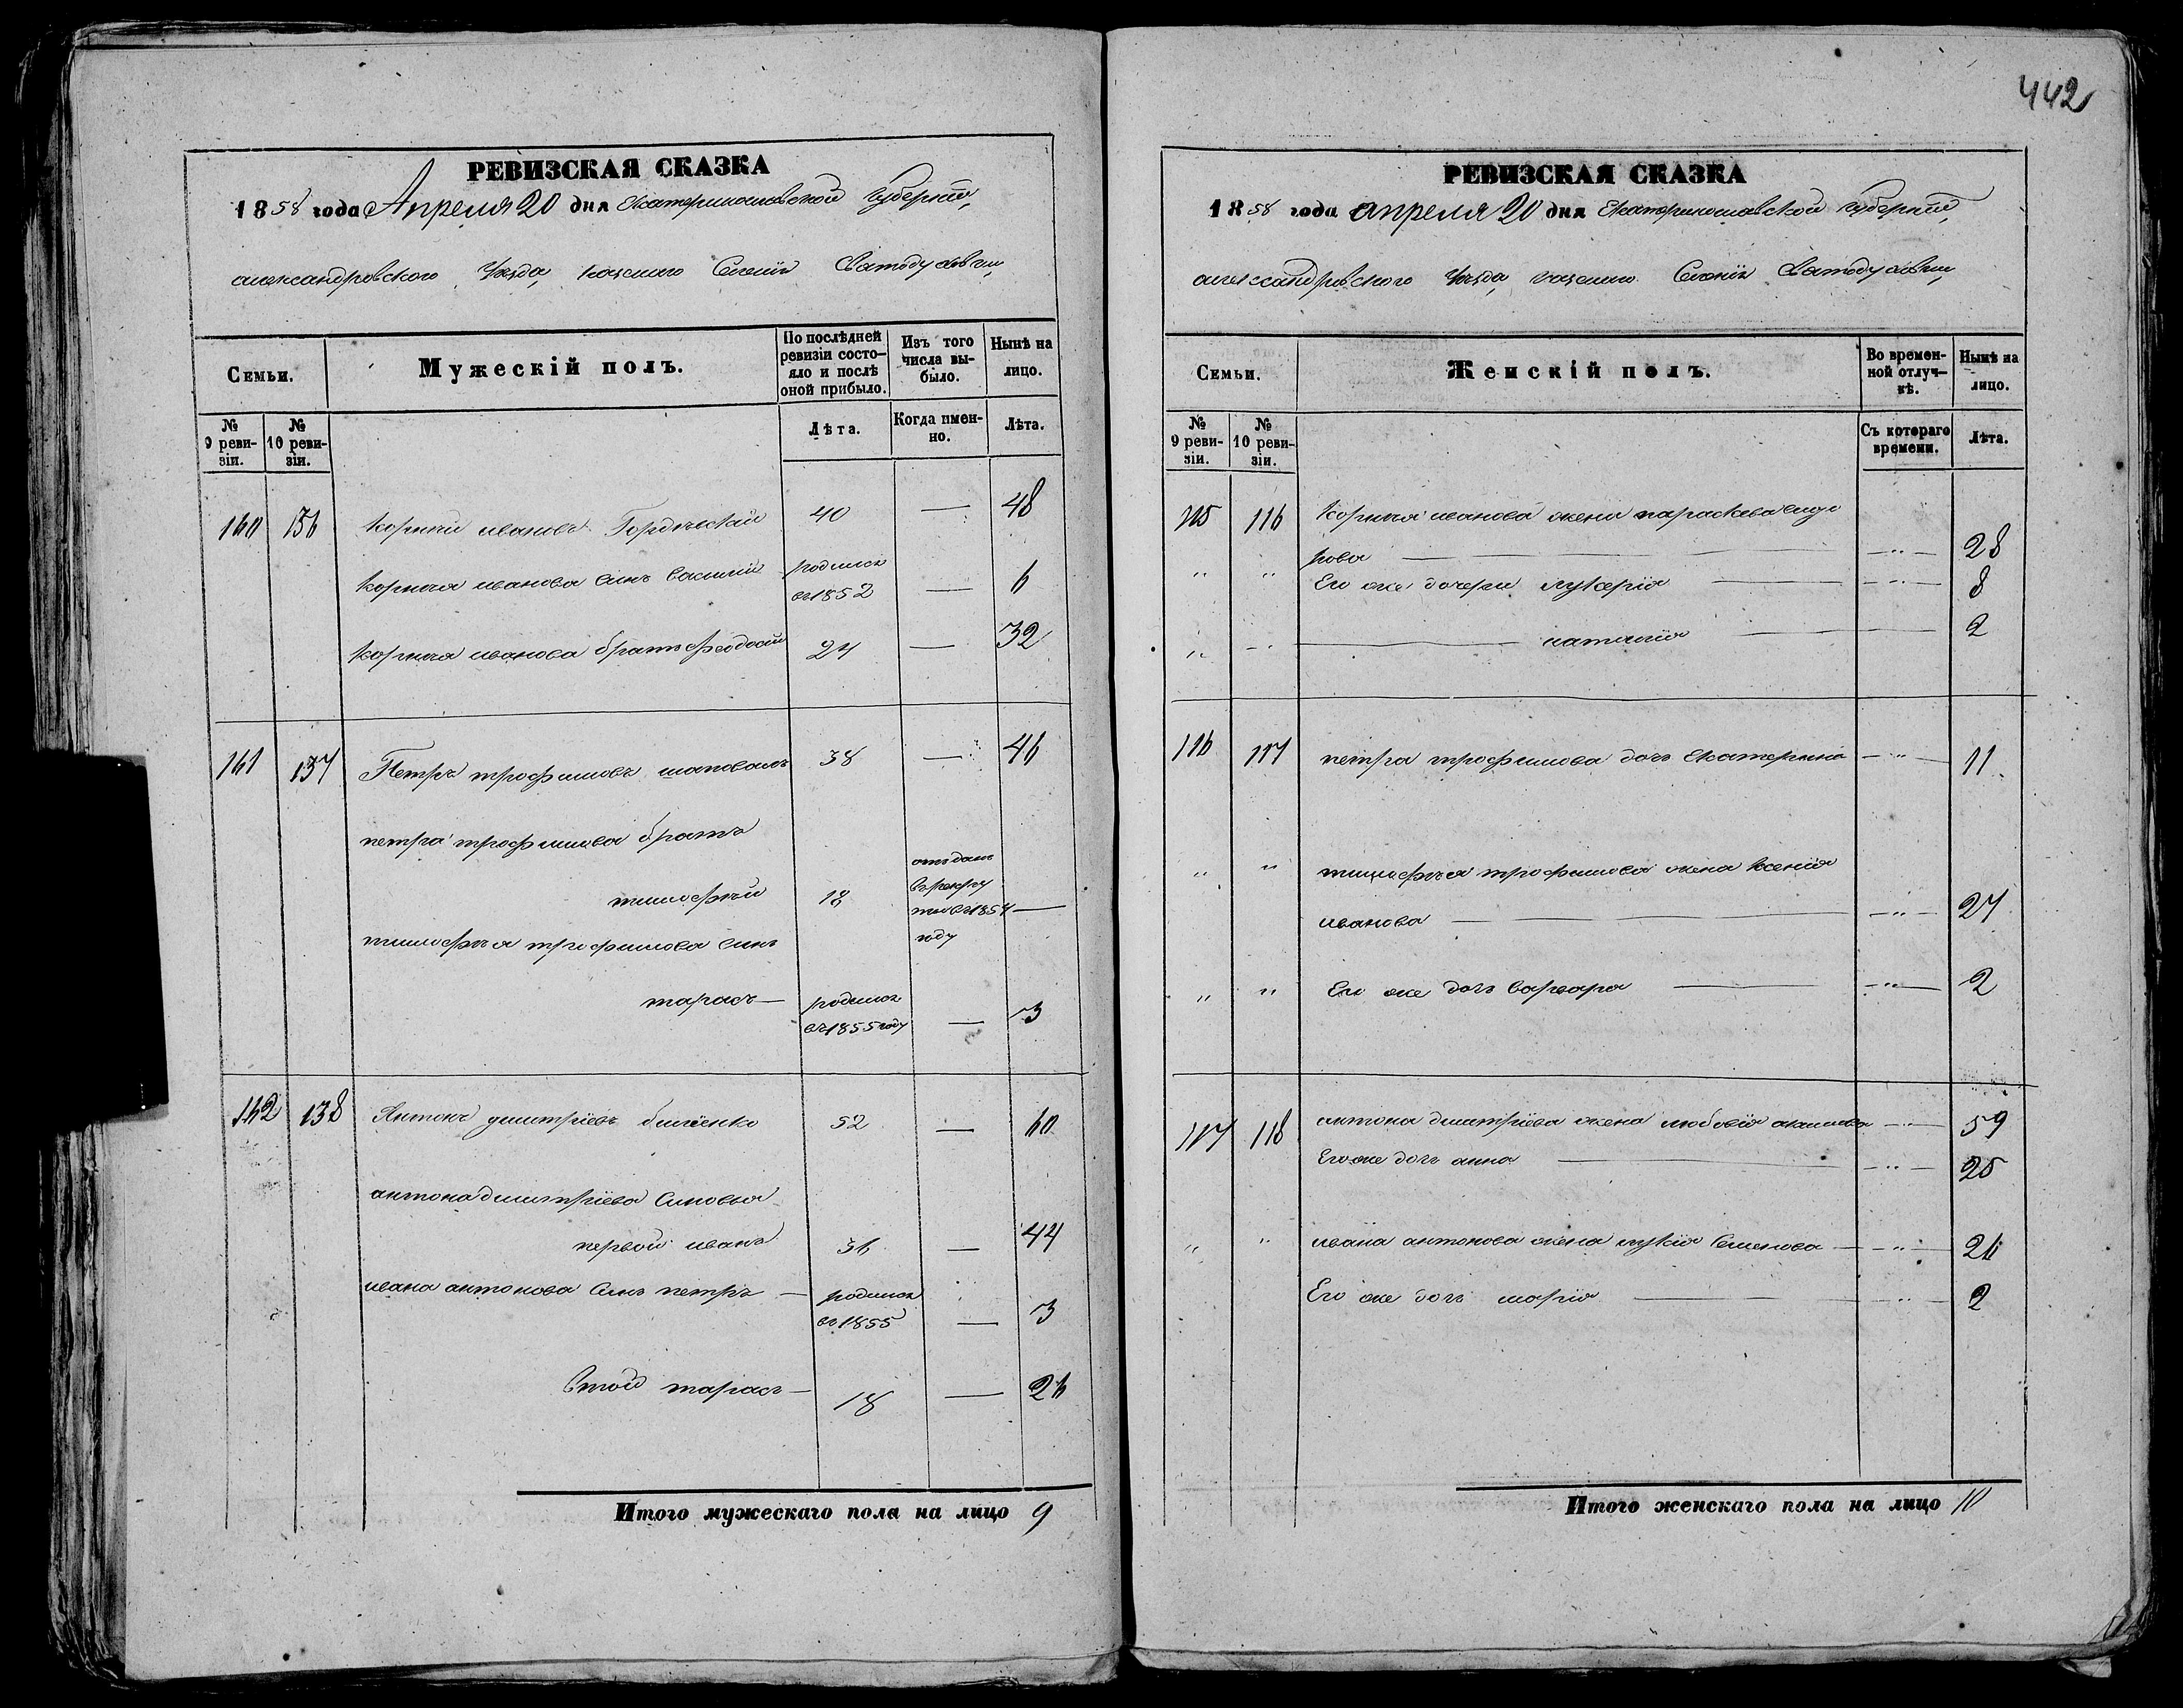 442
РЕВИЗСКАЯ СКАЗКА
1858 года Апреля 20 дня Екатеринославской Губерніи,
александровского Уезда, казеннаго Селенія Святодуховки,
Семьи.
Мужескій полъ.
По послѣдней ревизіи состо-
яло и послѣ оной прибыло.
Изъ того числа вы-
было.
Нынѣ на лицо.
№ 9 реви-
зіи.
№ 10 реви-
зіи.
Лѣта.
Когда имен-
но.
Лѣта.
160 136 Корнѣй ивановъ 40 — 48
Корнѣя иванова Сынъ василій родился въ 1852 — 6
Корнѣя иванова братъ феодосій 24 — 32
161 137 Петръ трофимовъ шаповалъ 38 — 46
петра трофимова братъ
тимофѣй 18 отъдан в рекруты въ 1854 году —
тимофѣя трофимова Сынъ
тарасъ — родился въ 1855 году — 3
162 138 Антонъ дмитріевъ 52 — 60
антона дмитріева Сыновья
первой иванъ 36 — 44
ивана антонова Сынъ петръ — родился въ 1855 — 3
Втой тарасъ — 18 — 26
Итого мужескаго пола на лицо 9
РЕВИЗСКАЯ СКАЗКА
1858 года апреля 20 дня Екатеринославской Губерніи,
александровского Уезда, казеннаго Селенія Святодуховки,
Семьи.
Женскій полъ.
Во времен-
ной отлуч-
кѣ.
Нынѣ на лицо.
№ 9 реви-
зіи.
№ 10 реви-
зіи.
Съ котораго времени.
Лѣта.
115 116 Корнѣя иванова жена параскева сидо
рова — — " — 28
" " Его же дочери лукерія — — " — 8
" " — наталія — — 2
116 117 петра трофимова дочь Екатерина — " — 11
" " тимофѣя трофимова жена Ксенія
иванова — — " — 27
" " Его же дочь варвара — — " — 2
117 118 антона дмитріева жена любовія акимова — " — 59
Его же дочь анна — — " — 25
" " ивана антонова жена лукія Семенова — — " — 26
Его же дочь марія — — " — 2
Итого женскаго пола на лицо 10